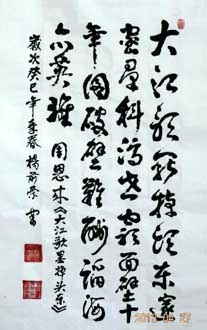 大江歌罢掉头东邃
密群科济世穷面壁十
年图破壁难酬蹈海
亦英雄 周恩来《大江歌罢掉头东》
岁次癸巳年季春 杨前荣 书